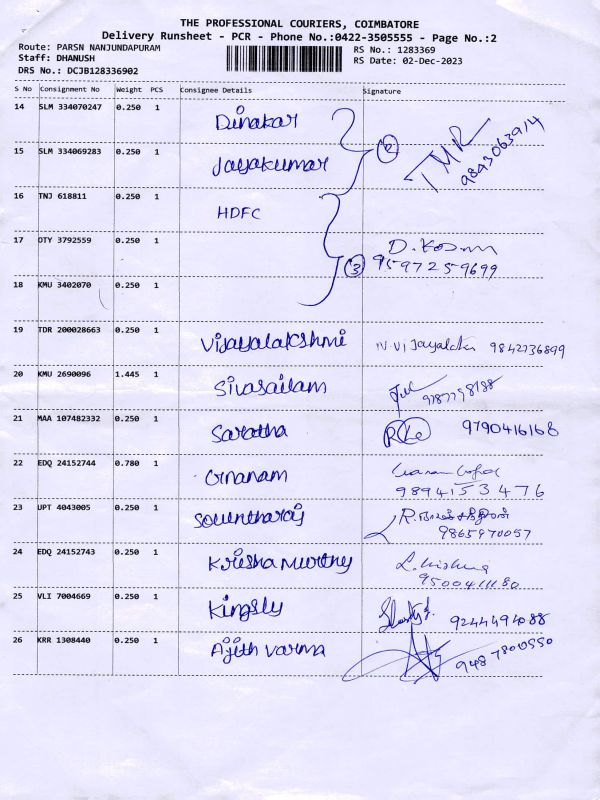 THE PROFESSIONAL COURIERS, COIMBATORE
Delivery Runsheet - PCR - Phone No.:0422-3505555 - Page No.:2
Route: PARSN NANJUNDAPURAM RS No.: 1283369
Staff: DHANUSH RS Date: 02-Dec-2023
DRS No.: DCJB128336902
S No Consignment No Weight PCS Consignee Details Signature
14 SLM 334070247 0.250 1 Dinakar
15 SLM 334069283 0.250 1 Jayakumar 2 TMR 9843063914
16 TNJ 618811 0.250 1 HDFC
17 OTY 3792559 0.250 1 3 D. 9597259699
18 KMU 3402070 0.250 1
19 TDR 200028663 0.250 1 Vijayalakshmi 9842736899
20 KMU 2690096 1.445 1 Sivasailam
21 MAA 107482332 0.250 1 Saratha 9790416168
22 EDQ 24152744 0.780 1 Gnanam
9894153476
23 UPT 4043005 0.250 1 Sountharaj R.
9865970057
24 EDQ 24152743 0.250 1 Krishna Murthy
25 VLI 7004669 0.250 1 Kingsly 9244494088
26 KRR 1308440 0.250 1 Ajith Varma 9487800550